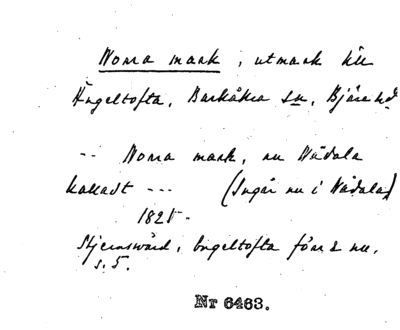 Norra mark, utmark till
Ängeltofta, Barkåkra sn, Bjäre hd
-- Norra mark, nu Wådala
kalladt --- (Ingår nu i Wådala)
1825 -
Stjernswärd, Engeltofta förr & nu,
s. 5.
Nr 6463.